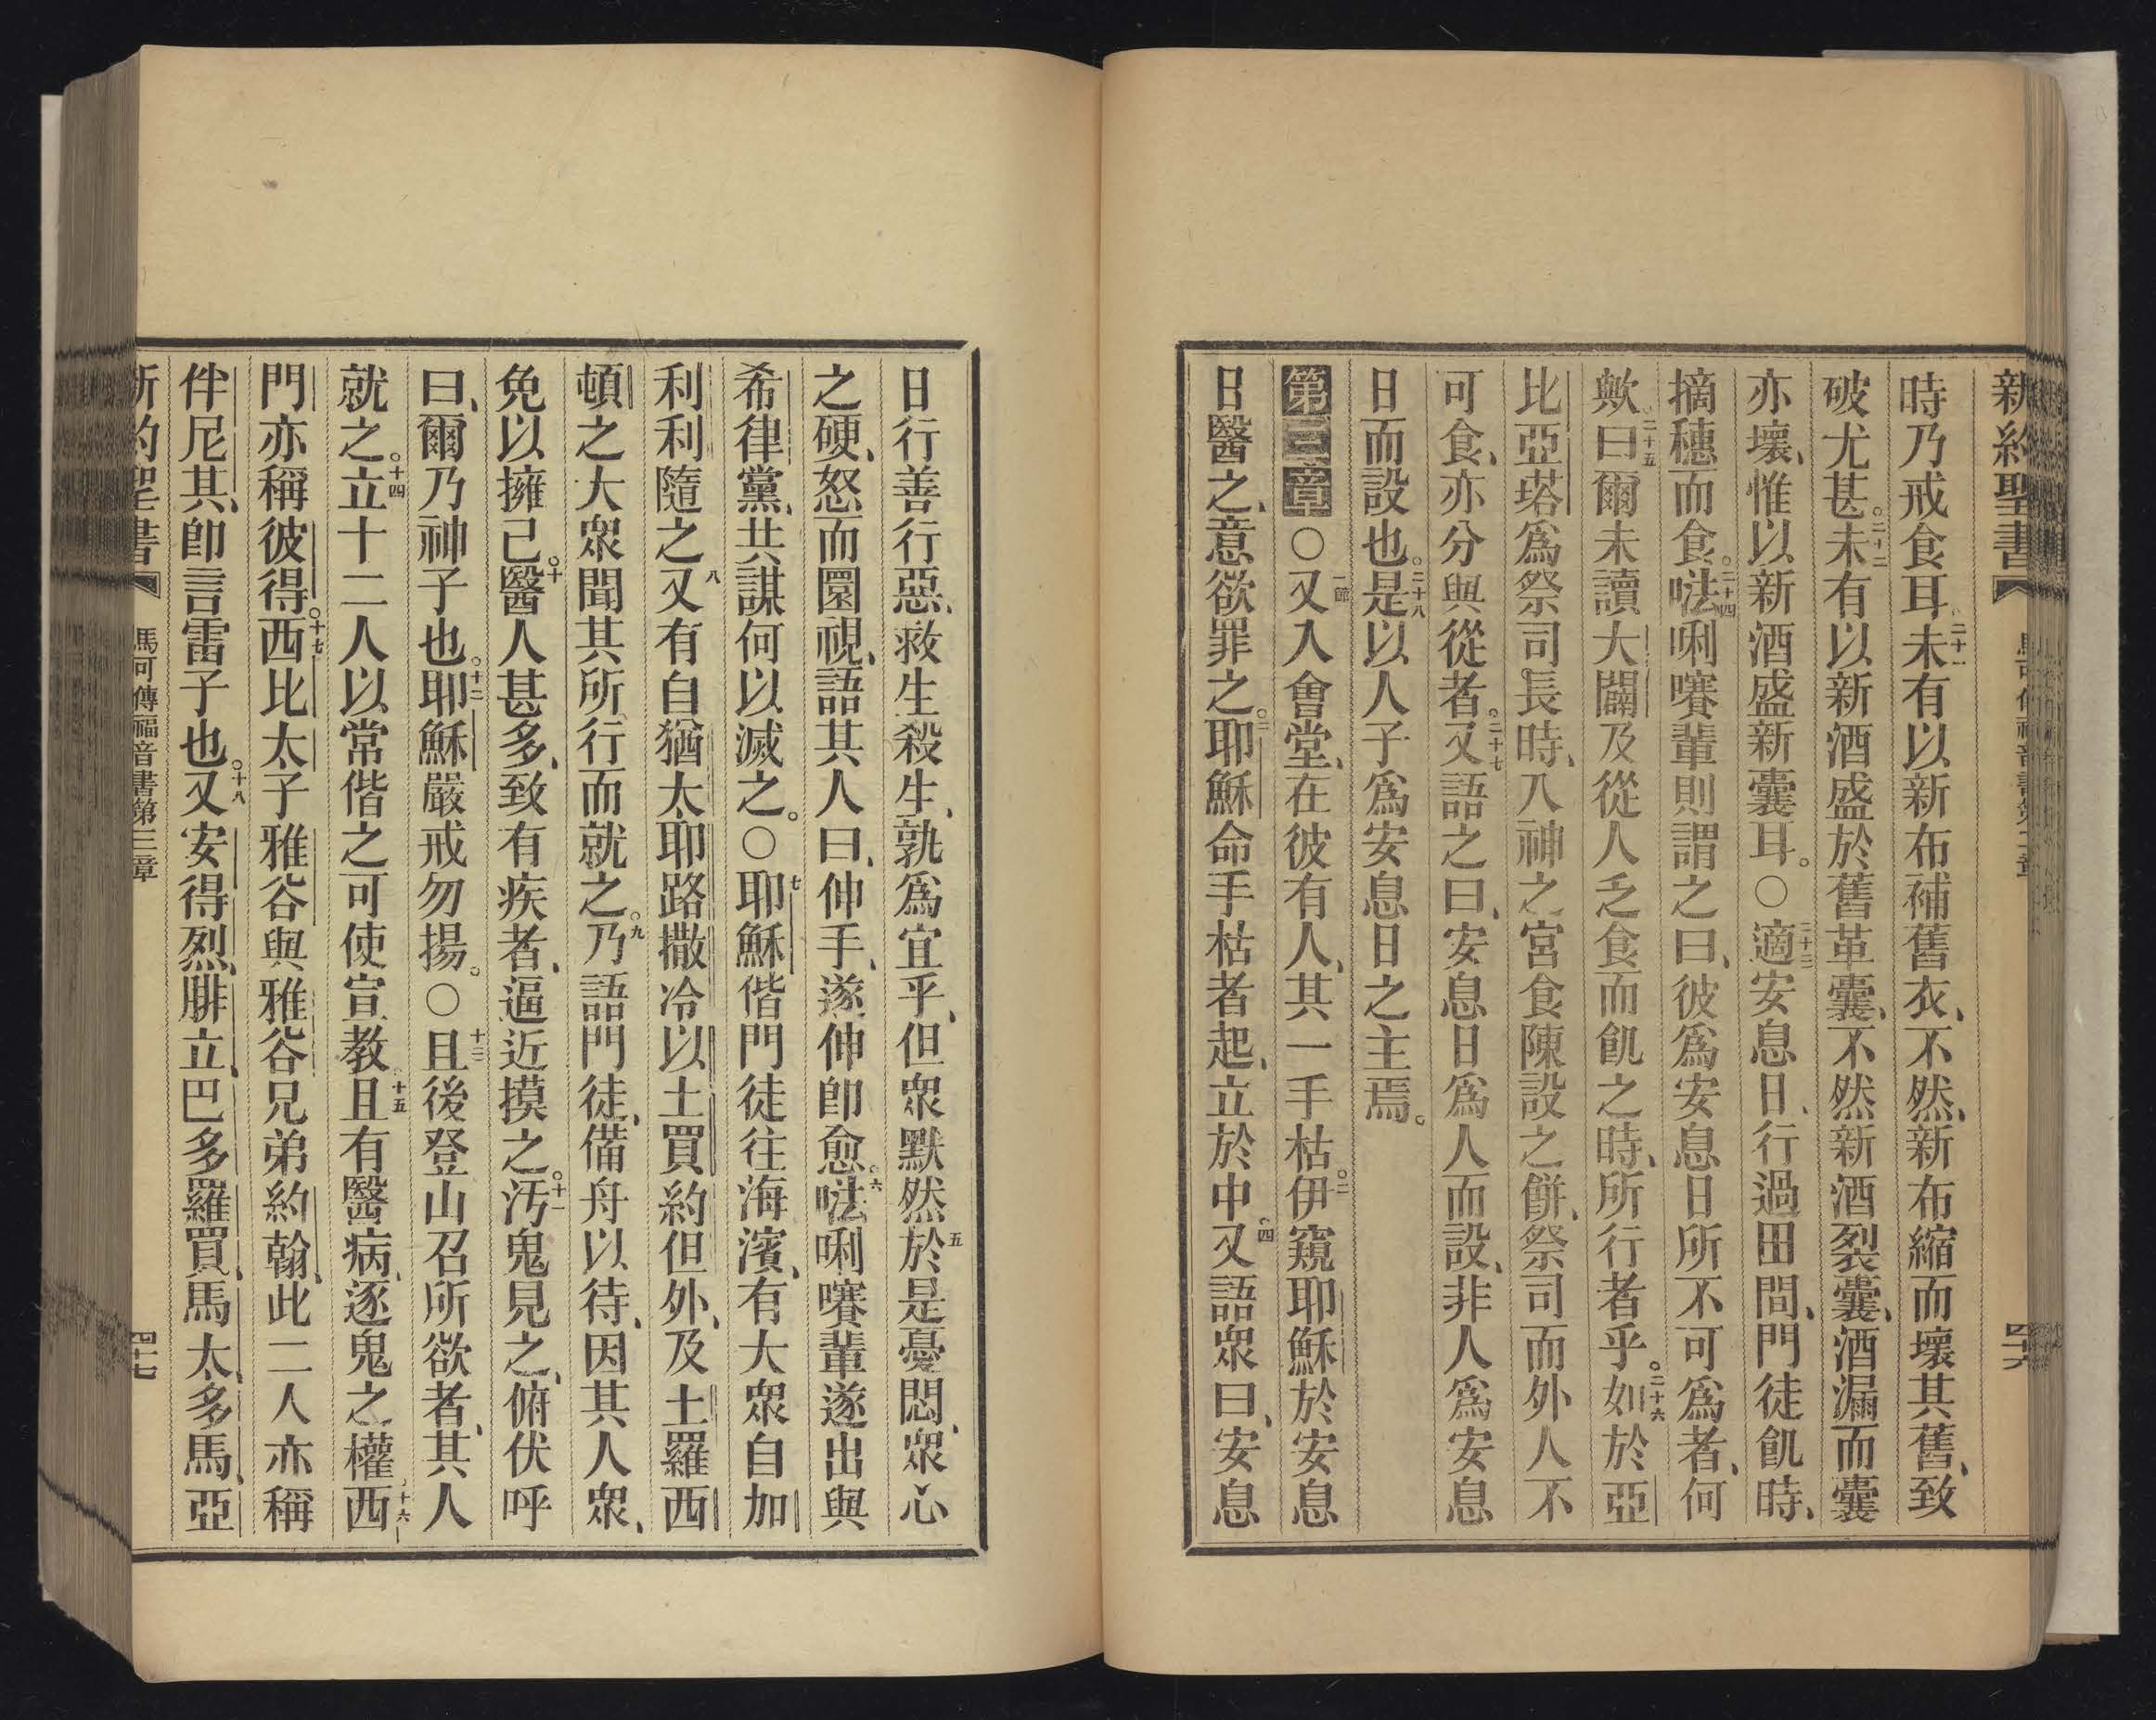 新約聖書 馬可傳福音書第二章 四十六
時乃戒食耳、二十一未有以新布補舊衣、不然、新布縮而壞其舊、致
破尤甚。二十二未有以新酒盛於舊革囊、不然新酒裂囊、酒漏而囊
亦壞、惟以新酒盛新囊耳。〇二十三適安息日、行過田間、門徒飢時、
摘穗而食。二十四𠵽唎嚽輩則謂之曰、彼爲安息日所不可爲者、何
歟。二十五曰爾未讀大闢及從人乏食而飢之時、所行者乎。二十六如於亞
比亞塔爲祭司長時、入神之宮食陳設之餅、祭司而外人不
可食、亦分與從者。二十七又語之曰、安息日爲人而設、非人爲安息
日而設也。二十八是以人子爲安息日之主焉。
第三章〇一節又入會堂、在彼有人、其一手枯。二伊窺耶穌於安息
日醫之、意欲罪之。三耶穌命手枯者起、立於中、四又語眾曰、安息
日行善行惡、救生殺生、孰爲宜乎、但眾默然五於是憂悶、眾心
之硬、怒而圜視、語其人曰、伸手、遂伸卽愈。六𠵽唎嚽輩遂出與
希律黨、共謀何以滅之。〇七耶穌偕門徒往海濱、有大眾自加
利利隨之八又有自猶太耶路撒冷以土買約但外、及土羅西
頓之大眾聞其所行而就之。九乃語門徒、備舟以待、因其人眾、
免以擁己。十醫人甚多、致有疾者、逼近摸之。十一汚鬼見之、俯伏呼
曰、爾乃神子也。十二耶穌嚴戒勿揚。〇十三且後登山召所欲者、其人
就之。十四立十二人以常偕之可使宣教、十五且有醫病、逐鬼之權、十六西
門亦稱彼得。十七西比太子雅谷與雅谷兄弟約翰、此二人亦稱
伴尼其、卽言雷子也。十八又安得烈、腓立、巴多羅買、馬太、多馬、亞
新約聖書 馬可傳福音書第三章 四十七